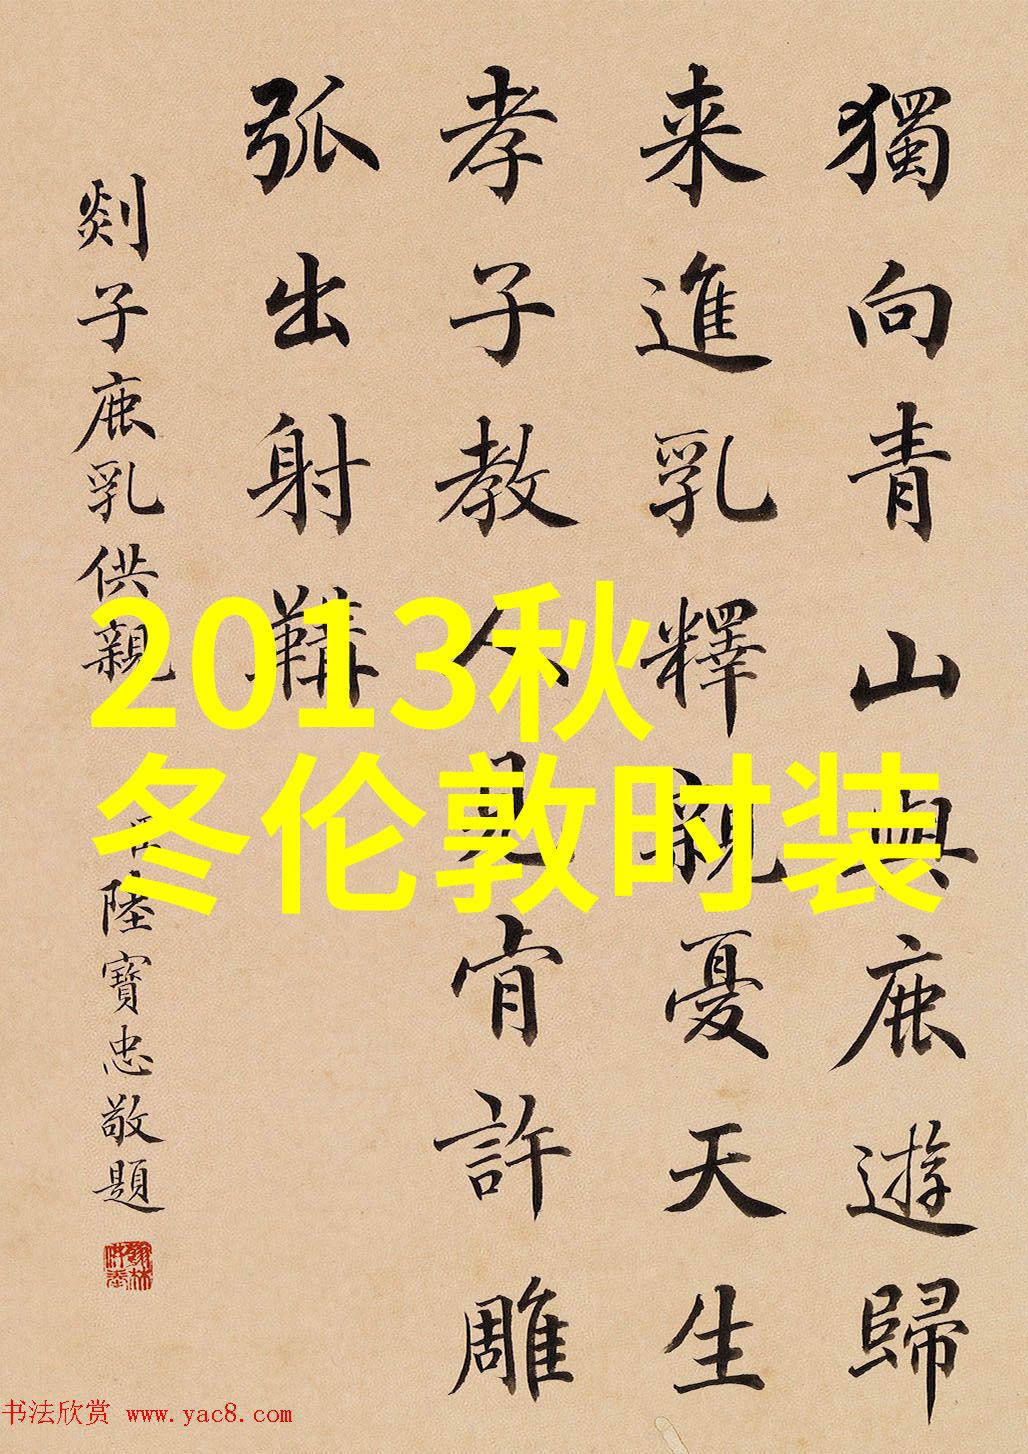 獨向青山與鹿遊歸
来進乳釋親憂天生
孝子教人見肯許雕
弧出射鞲
剡子鹿乳供親
陸寶忠敬題
2013秋
冬伦敦时装
书法欣赏 www.yac8.com